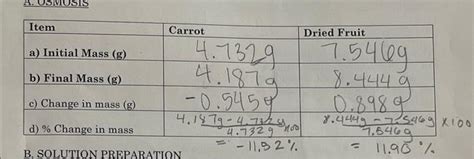 A. OSMOSIS
Item Carrot Dried Fruit
a) Initial Mass (g) 4.732g 7.546g
b) Final Mass (g) 4.187g 8.444g
c) Change in mass (g) -0.545g 0.898g
d) % Change in mass 4.187g - 4.732g / 4.732g x100 = -11.52% 8.444g - 7.546g / 7.546g x100 = 11.90%
B. SOLUTION PREPARATION